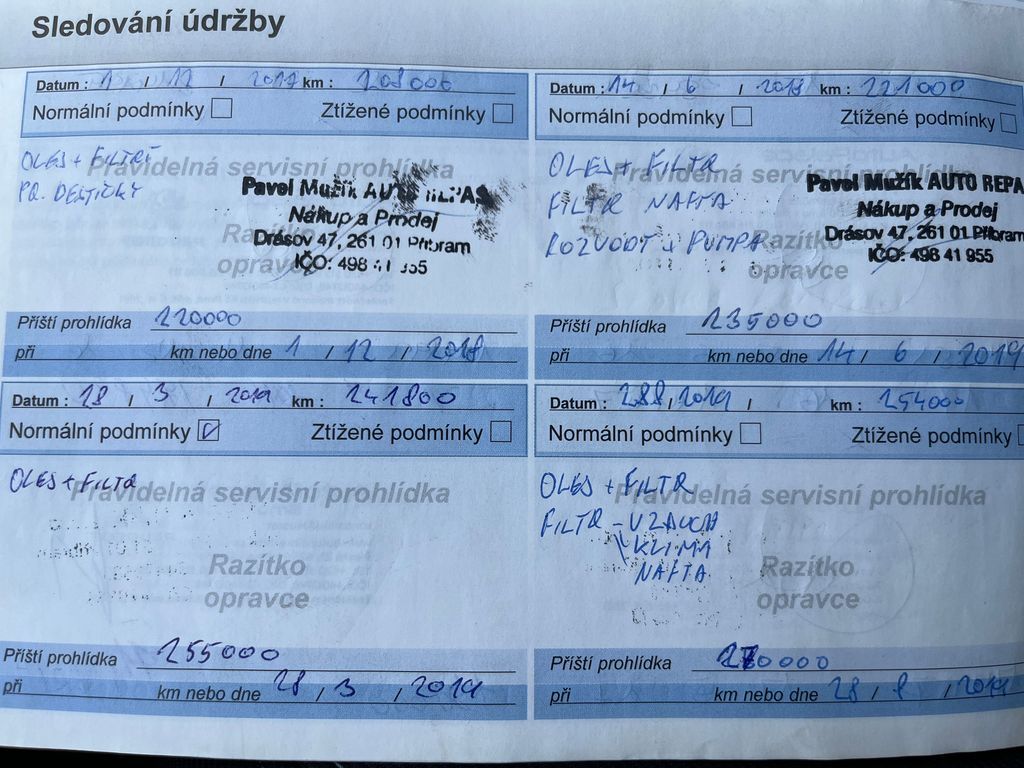 Sledování údržby
Datum : 1 / 12 / 2017 km : 208000
Normální podmínky Ztížené podmínky
OLEJ + FILTR
Pravidelná servisní prohlídka
PŘ. DESTIČKY
Pavel Mužík AUTO
Nákup a Prodej
Drásov 47, 261 01 Příbram
IČO: 498 41 955
Razítko
opravce
Příští prohlídka 220000
při km nebo dne 1 / 12 / 2018
Datum : 14 / 6 / 2018 km : 221000
Normální podmínky Ztížené podmínky
OLEJ + FILTR
Pravidelná servisní prohlídka
FILTR NAFTA
ROZVODY + PUMPA
Pavel Mužík AUTO REPA
Nákup a Prodej
Drásov 47, 261 01 Příbram
IČO: 498 41 955
Razítko
opravce
Příští prohlídka 235000
při km nebo dne 14 / 6 / 2019
Datum : 28 / 3 / 2019 km : 241800
Normální podmínky Ztížené podmínky
OLEJ + FILTR
Pravidelná servisní prohlídka
Razítko
opravce
Příští prohlídka 255000
při km nebo dne 28 / 3 / 2019
Datum : 288 / 2019 / km : 254000
Normální podmínky Ztížené podmínky
OLEJ + FILTR
Pravidelná servisní prohlídka
FILTR - VZDUCH
KLIMA
NAFTA
Razítko
opravce
Příští prohlídka 270000
při km nebo dne 28 / 8 / 2019